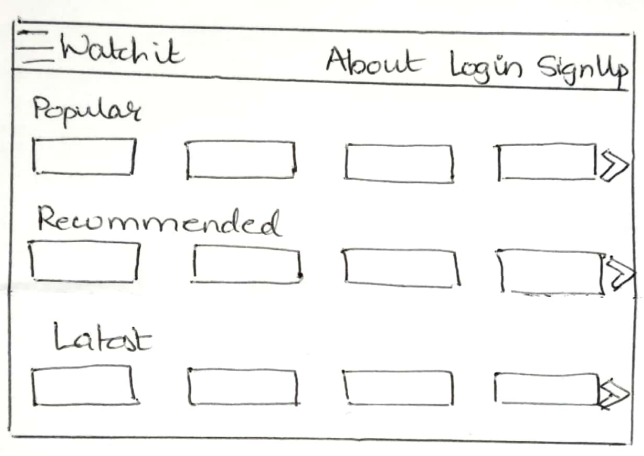 Watchit About Login SignUp
Popular
Recommended
Latest